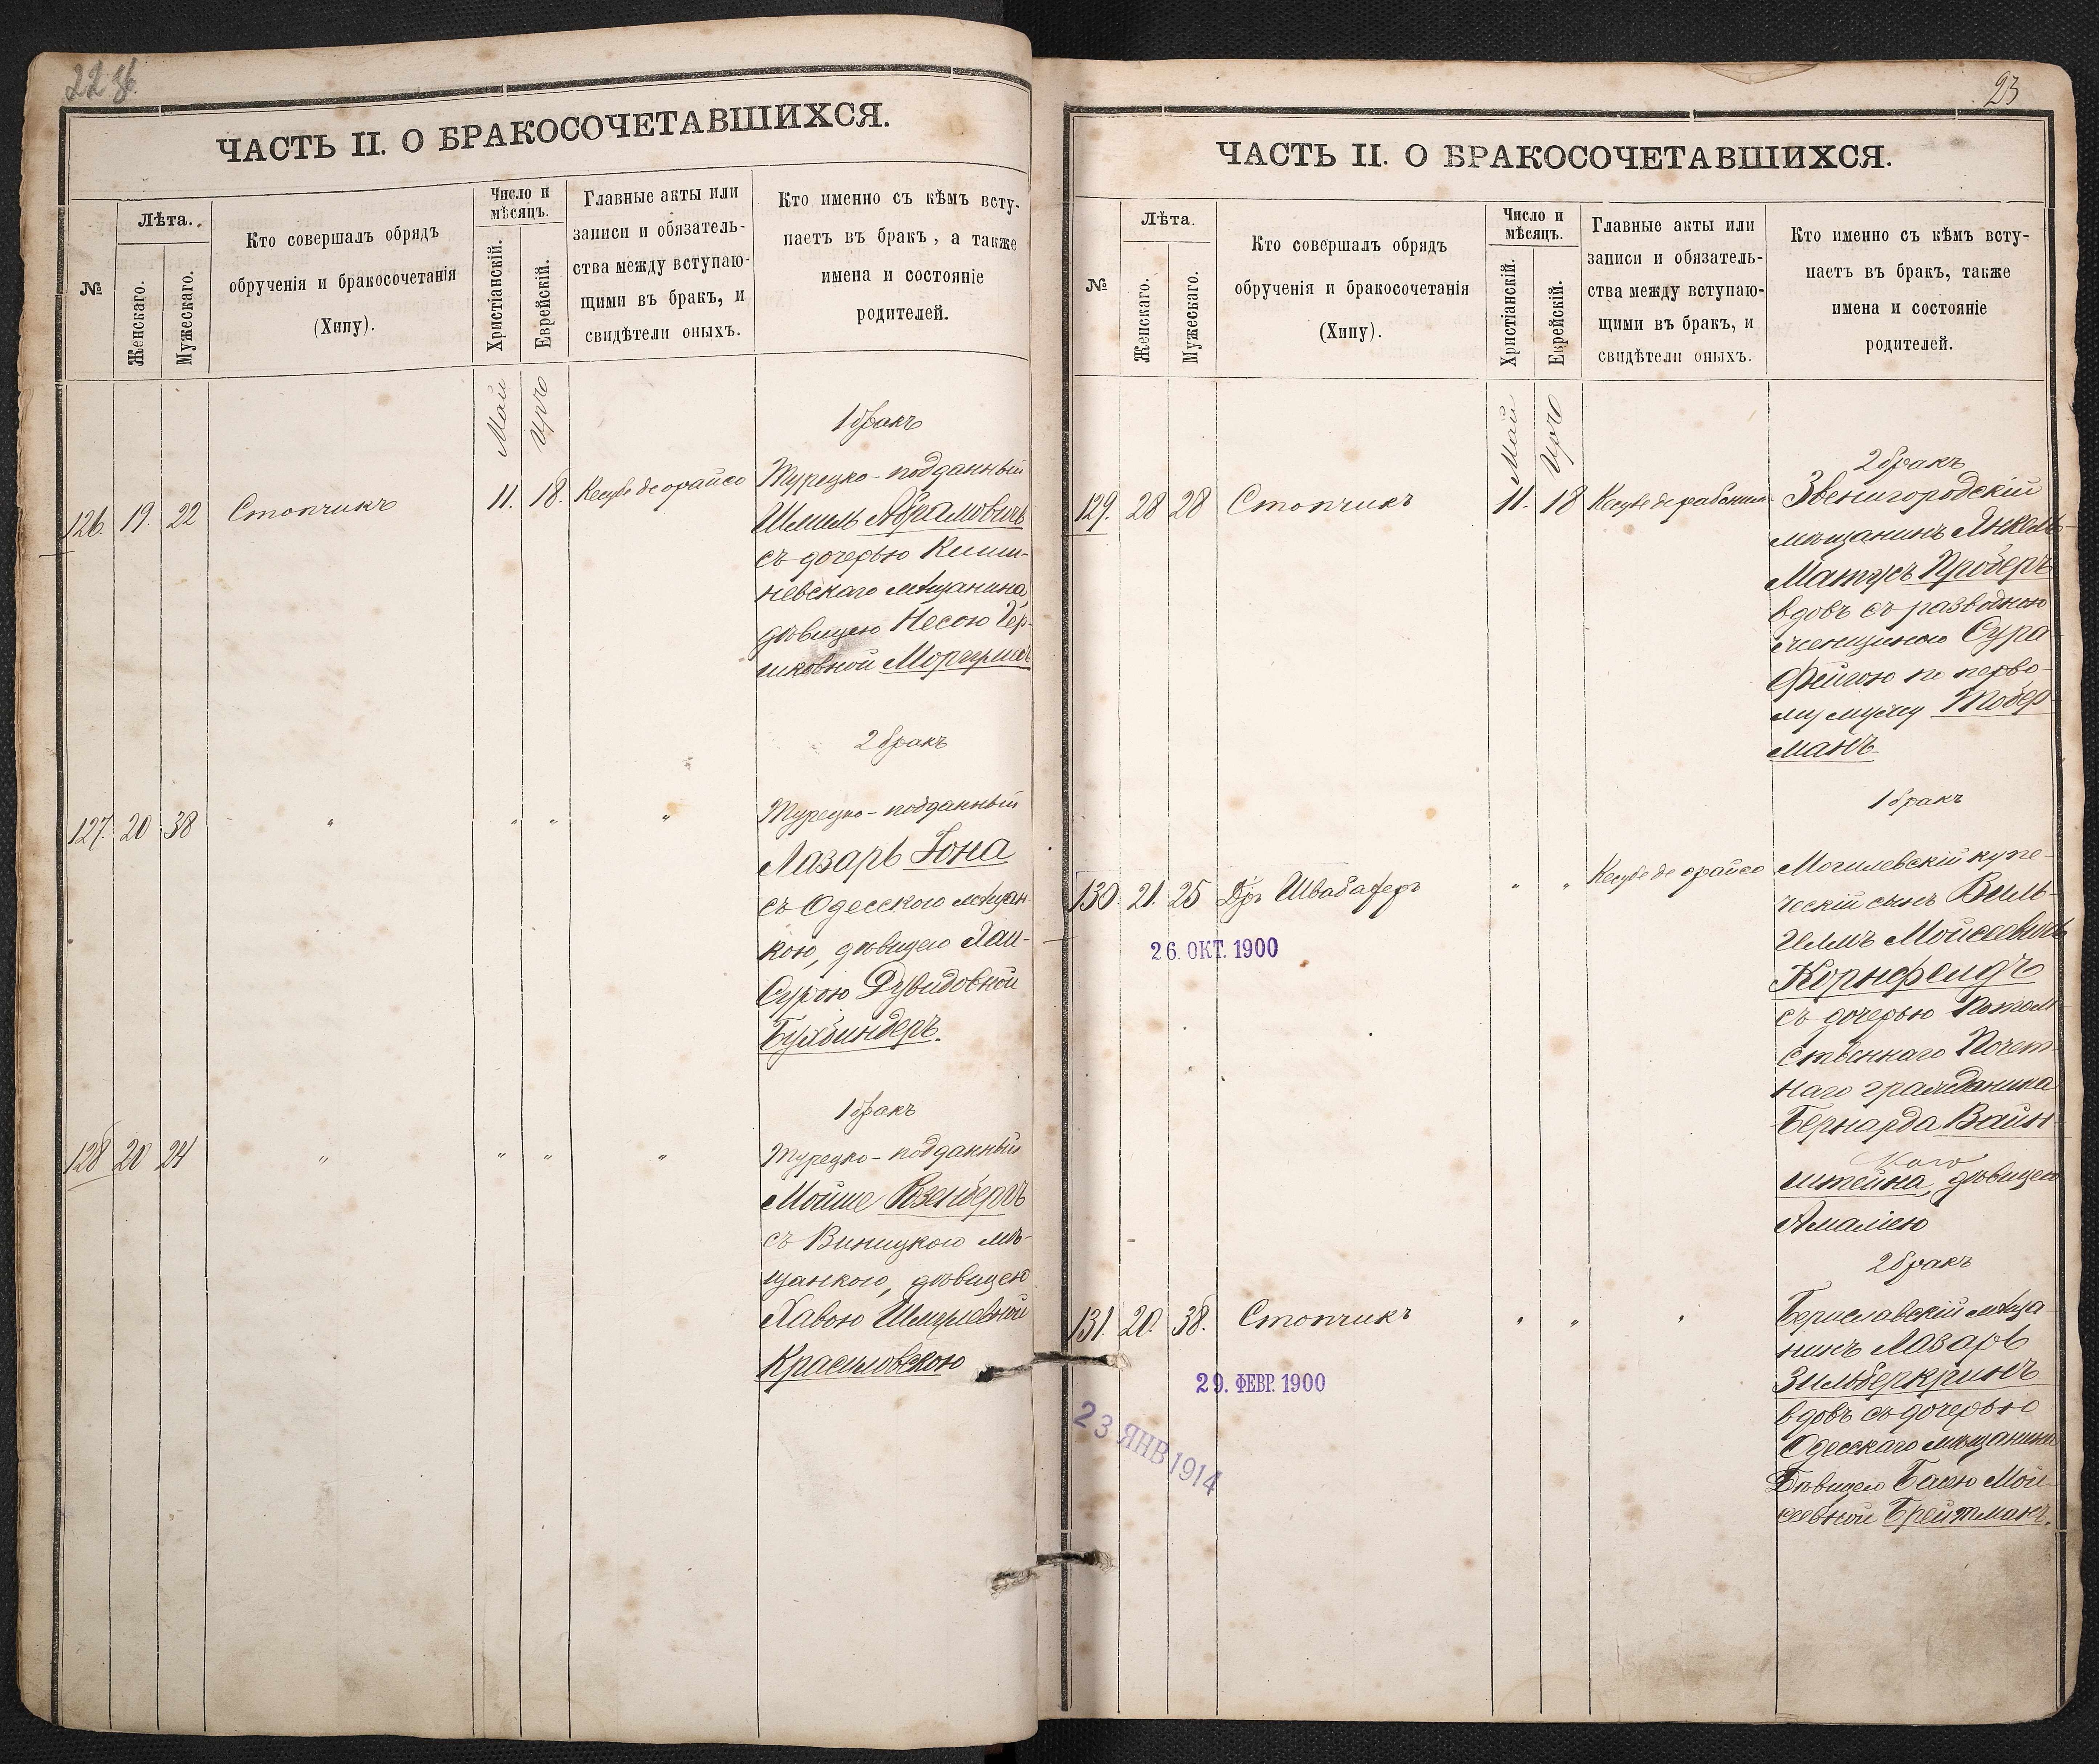 22 об.
ЧАСТЬ II. О БРАКОСОЧЕТАВШИХСЯ.
№
Лѣта.
Женскаго.
Мужескаго.
Кто совершалъ обрядъ
обрученія и бракосочетанія
(Хипу).
Число и
мѣсяцъ.
Христіанскій.
Еврейскій.
Главные акты или
записи и обязатель-
ства между вступаю-
щими въ бракъ, и
свидѣтели оныхъ.
Кто именно съ кѣмъ всту-
паетъ въ бракъ, а также
имена и состояніе
родителей.
Май
Иръ
1 бракъ
126. 19. 22 Стопчикъ 11. 18. Кесубе де орайсо
Турецко-подданный
Шмиль Абрамовичъ
съ дочерью Киши-
невскаго мѣщанина
дѣвицею Несею Гер-
шковной
2 бракъ
127. 20 38 " " " "
Турецко-подданный
Лазарь Іона
съ Одесскою мѣщан-
кою, дѣвицею Хаи-
Сурою Дувидовной
Бухбиндеръ.
1 бракъ
128 20 24 " " " "
Турецко-подданный
Мойше
съ Виницкою мѣ-
щанкою, дѣвицею
Хавою Шмулевной
Красиловскою
23
ЧАСТЬ II. О БРАКОСОЧЕТАВШИХСЯ.
№
Лѣта.
Женскаго.
Мужескаго.
Кто совершалъ обрядъ
обрученія и бракосочетанія
(Хипу).
Число и
мѣсяцъ.
Христіанскій.
Еврейскій.
Главные акты или
записи и обязатель-
ства между вступаю-
щими въ бракъ, и
свидѣтели оныхъ.
Кто именно съ кѣмъ всту-
паетъ въ бракъ, также
имена и состояніе
родителей.
Май
Иръ
2 бракъ
129. 28 28 Стопчикъ 11. 18 Кесубе де
Звенигородскій
мѣщанинъ Янкель-
Матусъ Проберъ
вдовъ съ разводною
женщиною Сура-
Фейгою по перво-
му мужу Тобер-
манъ
1 бракъ
130. 21. 25 Д-ръ Швабахеръ " " Кесубе де орайсо
26. ОКТ. 1900
Могилевскій купе-
ческій сынъ Виль-
гелмъ Мойсеевичъ
Корнфельдъ
съ дочерью Потом-
ственнаго Почет-
наго гражданина
Бернарда Вайн-
штейна, дѣвицею
Амаліею
2 бракъ
131. 20. 38. Стопчикъ " " "
29. ФЕВР. 1900
23 ЯНВ 1914
Бериславскій мѣща
нинъ Лазарь
Зильберкринъ
вдовъ съ дочерью
Одесскаго мѣщанина
Дѣвицею Басею Мой-
сеевной Брейтманъ.